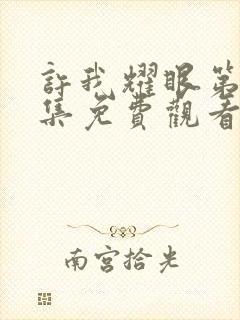 許我耀眼第
集免費觀看
南宮拾光